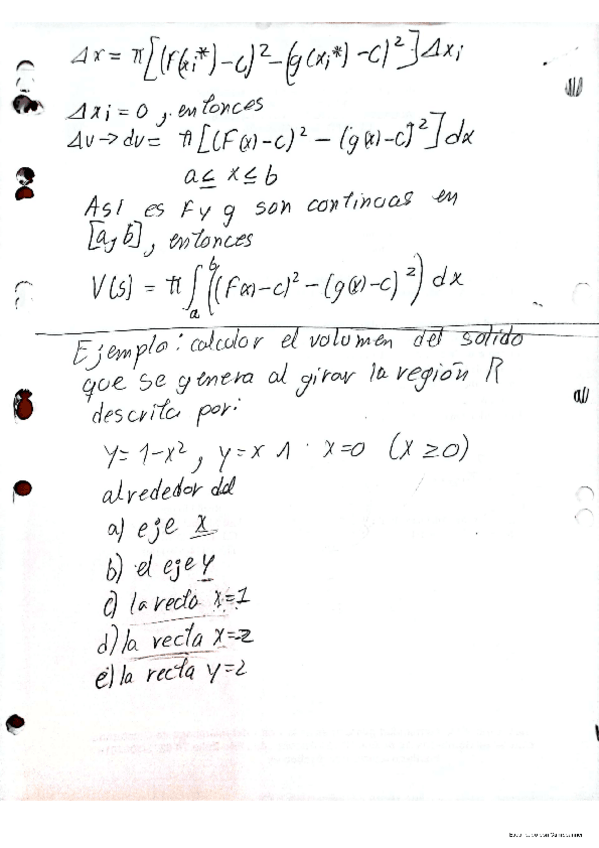 Δx = π[(f(xi*)-c)² - (g(xi*)-c)²] Δxi
Δxi = 0, entonces
Δv → dv = π[(F(x)-c)² - (g(x)-c)²] dx
a ≤ x ≤ b
Así es F y g son continuas en
[a, b], entonces
V(s) = π∫ₐᵇ ((F(x)-c)² - (g(x)-c)²) dx
Ejemplo: calcular el volumen del solido
que se genera al girar la región R
descrita por:
y = 1-x², y = x ∧ x = 0 (x ≥ 0)
alrededor del
a) eje x
b) el eje y
c) la recta x=1
d) la recta x=-2
e) la recta y=2